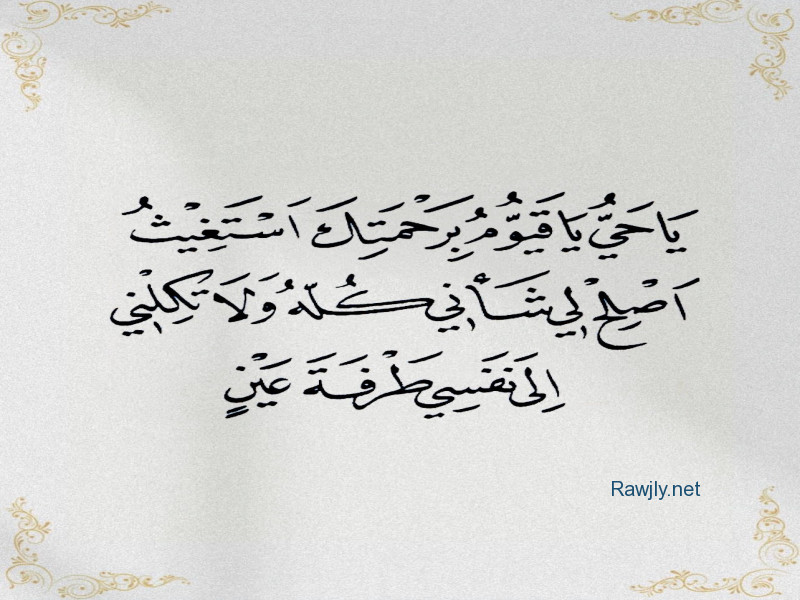 يَا حَيُّ يَا قَيُّوْمُ بِرَحْمَتِكَ اَسْتَغِيْثُ
اَصْلِحْ لِي شَأْنِي كُلَّهُ وَلَا تَكِلْنِي
اِلَى نَفَسِي طَرْفَةَ عَيْنٍ
Rawjly.net